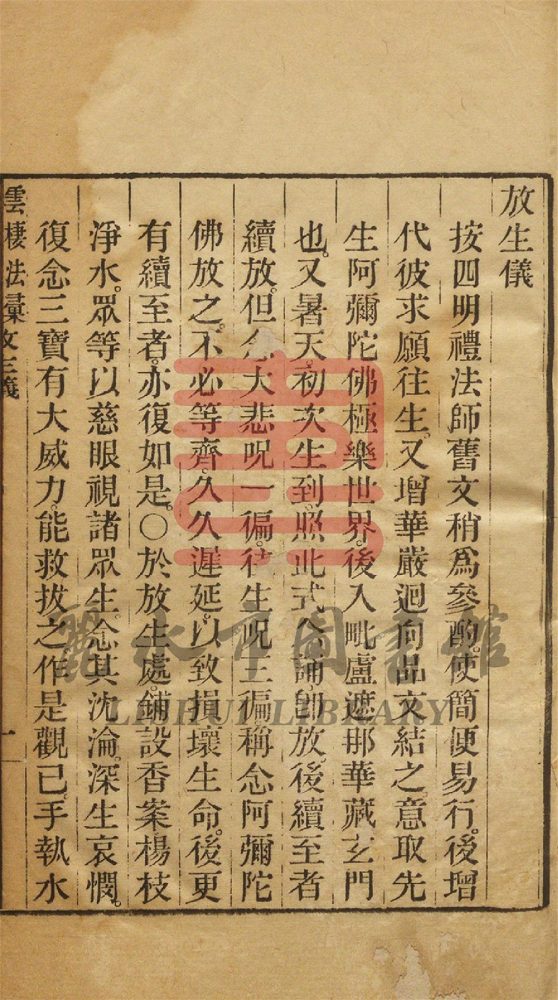 放生儀
按四明禮法師舊文稍爲參酌。使簡便易行。後增
代彼求願往生。又增華嚴迴向品文結之。意取先
生阿彌陀佛極樂世界。後入毗盧遮那華藏玄門
也。又暑天。初次生到。照此式念誦。即放。後續至者
續放。但念大悲呪一徧。往生呪三徧。稱念阿彌陀
佛放之。不必等齊。久久遲延。以致損壞生命。後更
有續至者。亦復如是。○於放生處。鋪設香案楊枝
淨水。眾等以慈眼視諸眾生。念其沈淪。深生哀憫。
復念三寶有大威力。能救拔之。作是觀已。手執水
雲棲法彙 放生儀 一
麗水市圖書館
LISHUI LIBRARY